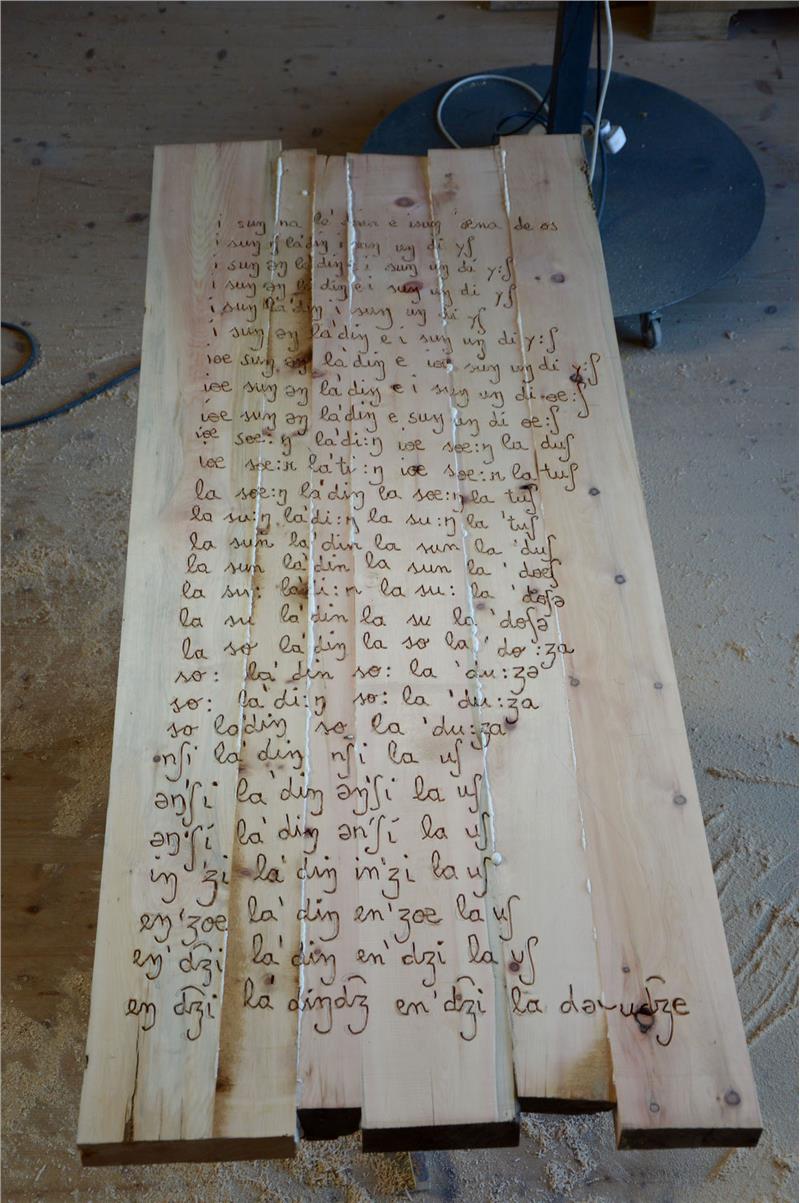 i suŋ na la'din e isuŋ 'œna de os
i suŋ ŋ la'diŋ i suŋ uŋ di yʃ
i suŋ əŋ la'diŋ e i suŋ uŋ di y:ʃ
i suŋ əŋ la'diŋ e i suŋ uŋ di yʃ
i suŋ la'diŋ i suŋ uŋ di yʃ
i suŋ əŋ la'diŋ e i suŋ uŋ di y:ʃ
iœ suŋ əŋ la'diŋ e iœ suŋ uŋ di y:ʃ
iœ suŋ əŋ la'diŋ e i suŋ uŋ di œ:ʃ
iœ suŋ əŋ la'diŋ e suŋ uŋ di œ:ʃ
iœ sœ:ŋ la'di:ŋ iœ sœ:ŋ la duʃ
iœ sœ:n la'ti:ŋ iœ sœ:n la tuʃ
la sœ:ŋ la'diŋ la sœ:ŋ la tuʃ
la su:ŋ la'di:ŋ la su:ŋ la 'tuʃ
la sun la'din la sun la 'duʃ
la sun la'din la sun la 'doʃ
la su: la'di:n la su: la 'doʃə
la su la'din la su la 'doʃə
la so la'diŋ la so la 'do:ʒa
so: la'din so: la 'du:ʒə
so: la'di:ŋ so: la 'du:ʒa
so la'diŋ so la 'du:ʒa
nʃi la'diŋ nʃi la uʃ
əŋ'ʃi la'diŋ əŋ'ʃi la uʃ
əŋ'ʃi la'diŋ ən'ʃi la uʃ
iŋ 'ʒi la'diŋ in'ʒi la uʃ
eŋ'ʒœ la'diŋ en'ʒœ la uʃ
eŋ'd͡ʒi la'diŋ en'dʒi la uʃ
eŋ d͡ʒi la'diŋd͡ʒ en'd͡ʒi la də‿ud͡ʒe